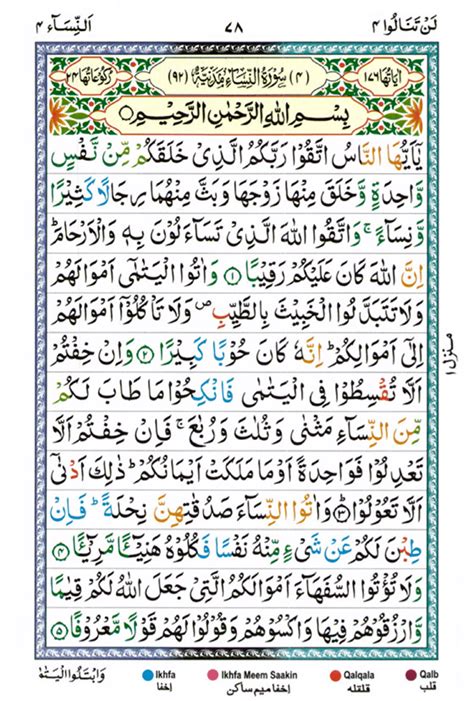 لَنْ تَنَالُوا ٤ ٧٨ اَلنِّسَآء ٤
اٰیَاتُهَا ١٧٦ (٤) سُوْرَةُ النِّسَآءِ مَدَنِیَّةٌ (٩٢) رُكُوْعَاتُهَا ٢٤
بِسْمِ اللّٰهِ الرَّحْمٰنِ الرَّحِیْمِ ○
یٰۤاَیُّهَا النَّاسُ اتَّقُوْا رَبَّكُمُ الَّذِیْ خَلَقَكُمْ مِّنْ نَّفْسٍ
وَّاحِدَةٍ وَّخَلَقَ مِنْهَا زَوْجَهَا وَبَثَّ مِنْهُمَا رِجَالًا كَثِیْرًا
وَّنِسَآءً ۚ وَاتَّقُوا اللّٰهَ الَّذِیْ تَسَآءَلُوْنَ بِهٖ وَالْاَرْحَامَ ؕ
اِنَّ اللّٰهَ كَانَ عَلَیْكُمْ رَقِیْبًا ۝١ وَاٰتُوا الْیَتٰمٰۤی اَمْوَالَهُمْ
وَلَا تَتَبَدَّلُوا الْخَبِیْثَ بِالطَّیِّبِ ۪ وَلَا تَاْكُلُوْۤا اَمْوَالَهُمْ
اِلٰۤی اَمْوَالِكُمْ ؕ اِنَّهٗ كَانَ حُوْبًا كَبِیْرًا ۝٢ وَاِنْ خِفْتُمْ
اَلَّا تُقْسِطُوْا فِی الْیَتٰمٰی فَانْكِحُوْا مَا طَابَ لَكُمْ
مِّنَ النِّسَآءِ مَثْنٰی وَثُلٰثَ وَرُبٰعَ ۚ فَاِنْ خِفْتُمْ اَلَّا
تَعْدِلُوْا فَوَاحِدَةً اَوْ مَا مَلَكَتْ اَیْمَانُكُمْ ؕ ذٰلِكَ اَدْنٰۤی
اَلَّا تَعُوْلُوْا ۝٣ وَاٰتُوا النِّسَآءَ صَدُقٰتِهِنَّ نِحْلَةً ؕ فَاِنْ
طِبْنَ لَكُمْ عَنْ شَیْءٍ مِّنْهُ نَفْسًا فَكُلُوْهُ هَنِیْٓـًٔا مَّرِیْٓـًٔا ۝٤
وَلَا تُؤْتُوا السُّفَهَآءَ اَمْوَالَكُمُ الَّتِیْ جَعَلَ اللّٰهُ لَكُمْ قِیٰمًا
وَّارْزُقُوْهُمْ فِیْهَا وَاكْسُوْهُمْ وَقُوْلُوْا لَهُمْ قَوْلًا مَّعْرُوْفًا ۝٥
منزل ١
Ikhfa Ikhfa Meem Saakin Qalqala Qalb
اخفا اخفا میم ساکن قلقلہ قلب
وَابْتَلُوا الْیَتٰمٰی